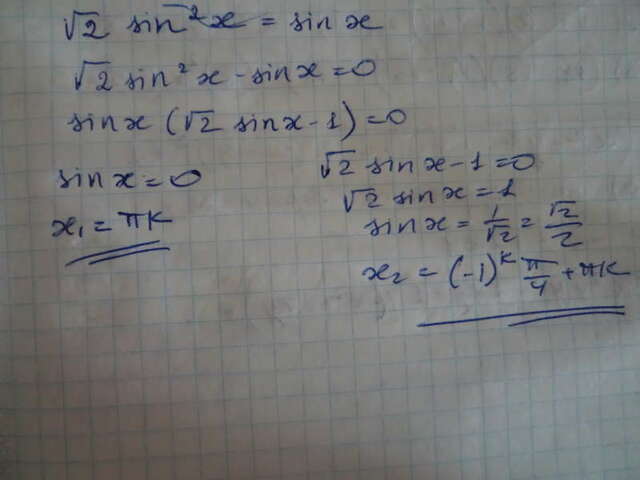 √2 sin²x = sin x
√2 sin²x - sin x = 0
sin x (√2 sin x - 1) = 0
sin x = 0
x₁ = πk
√2 sin x - 1 = 0
√2 sin x = 1
sin x = 1/√2 = √2/2
x₂ = (-1)ᵏ π/4 + πk